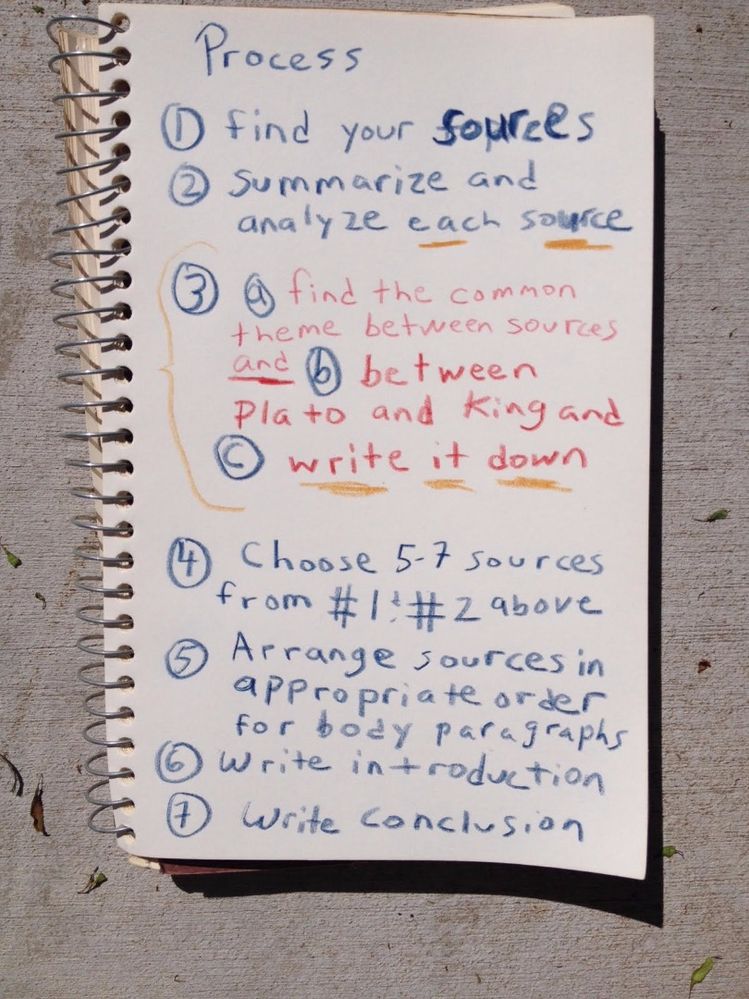 Process
① find your sources
② Summarize and
analyze each source
③ ⓐ find the common
theme between sources
and ⓑ between
Plato and King and
ⓒ write it down
④ Choose 5-7 sources
from #1 & #2 above
⑤ Arrange sources in
appropriate order
for body paragraphs
⑥ Write introduction
⑦ Write Conclusion